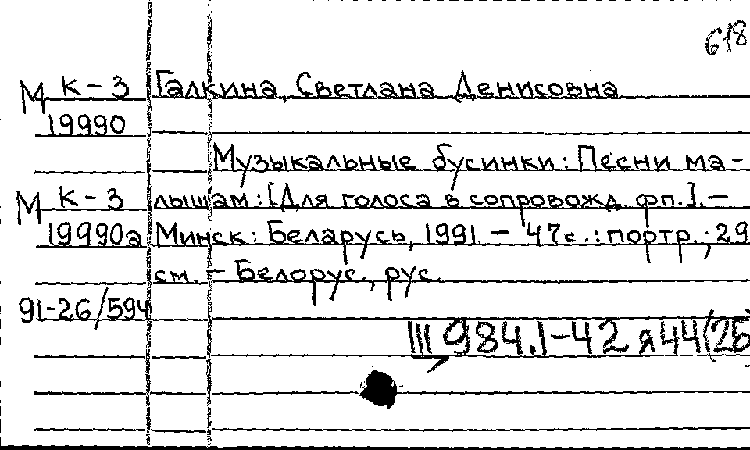 618
М К-3 Галкина, Светлана Денисовна
19990
Музыкальные бусинки: Песни ма-
М К-3 лышам: [Для голоса в сопровожд. фп.]. -
19990а Минск: Беларусь, 1991 - 47с.: портр.; 29
см. - Белорус., рус.
91-26/594
III 984.1-42 я44(2Б